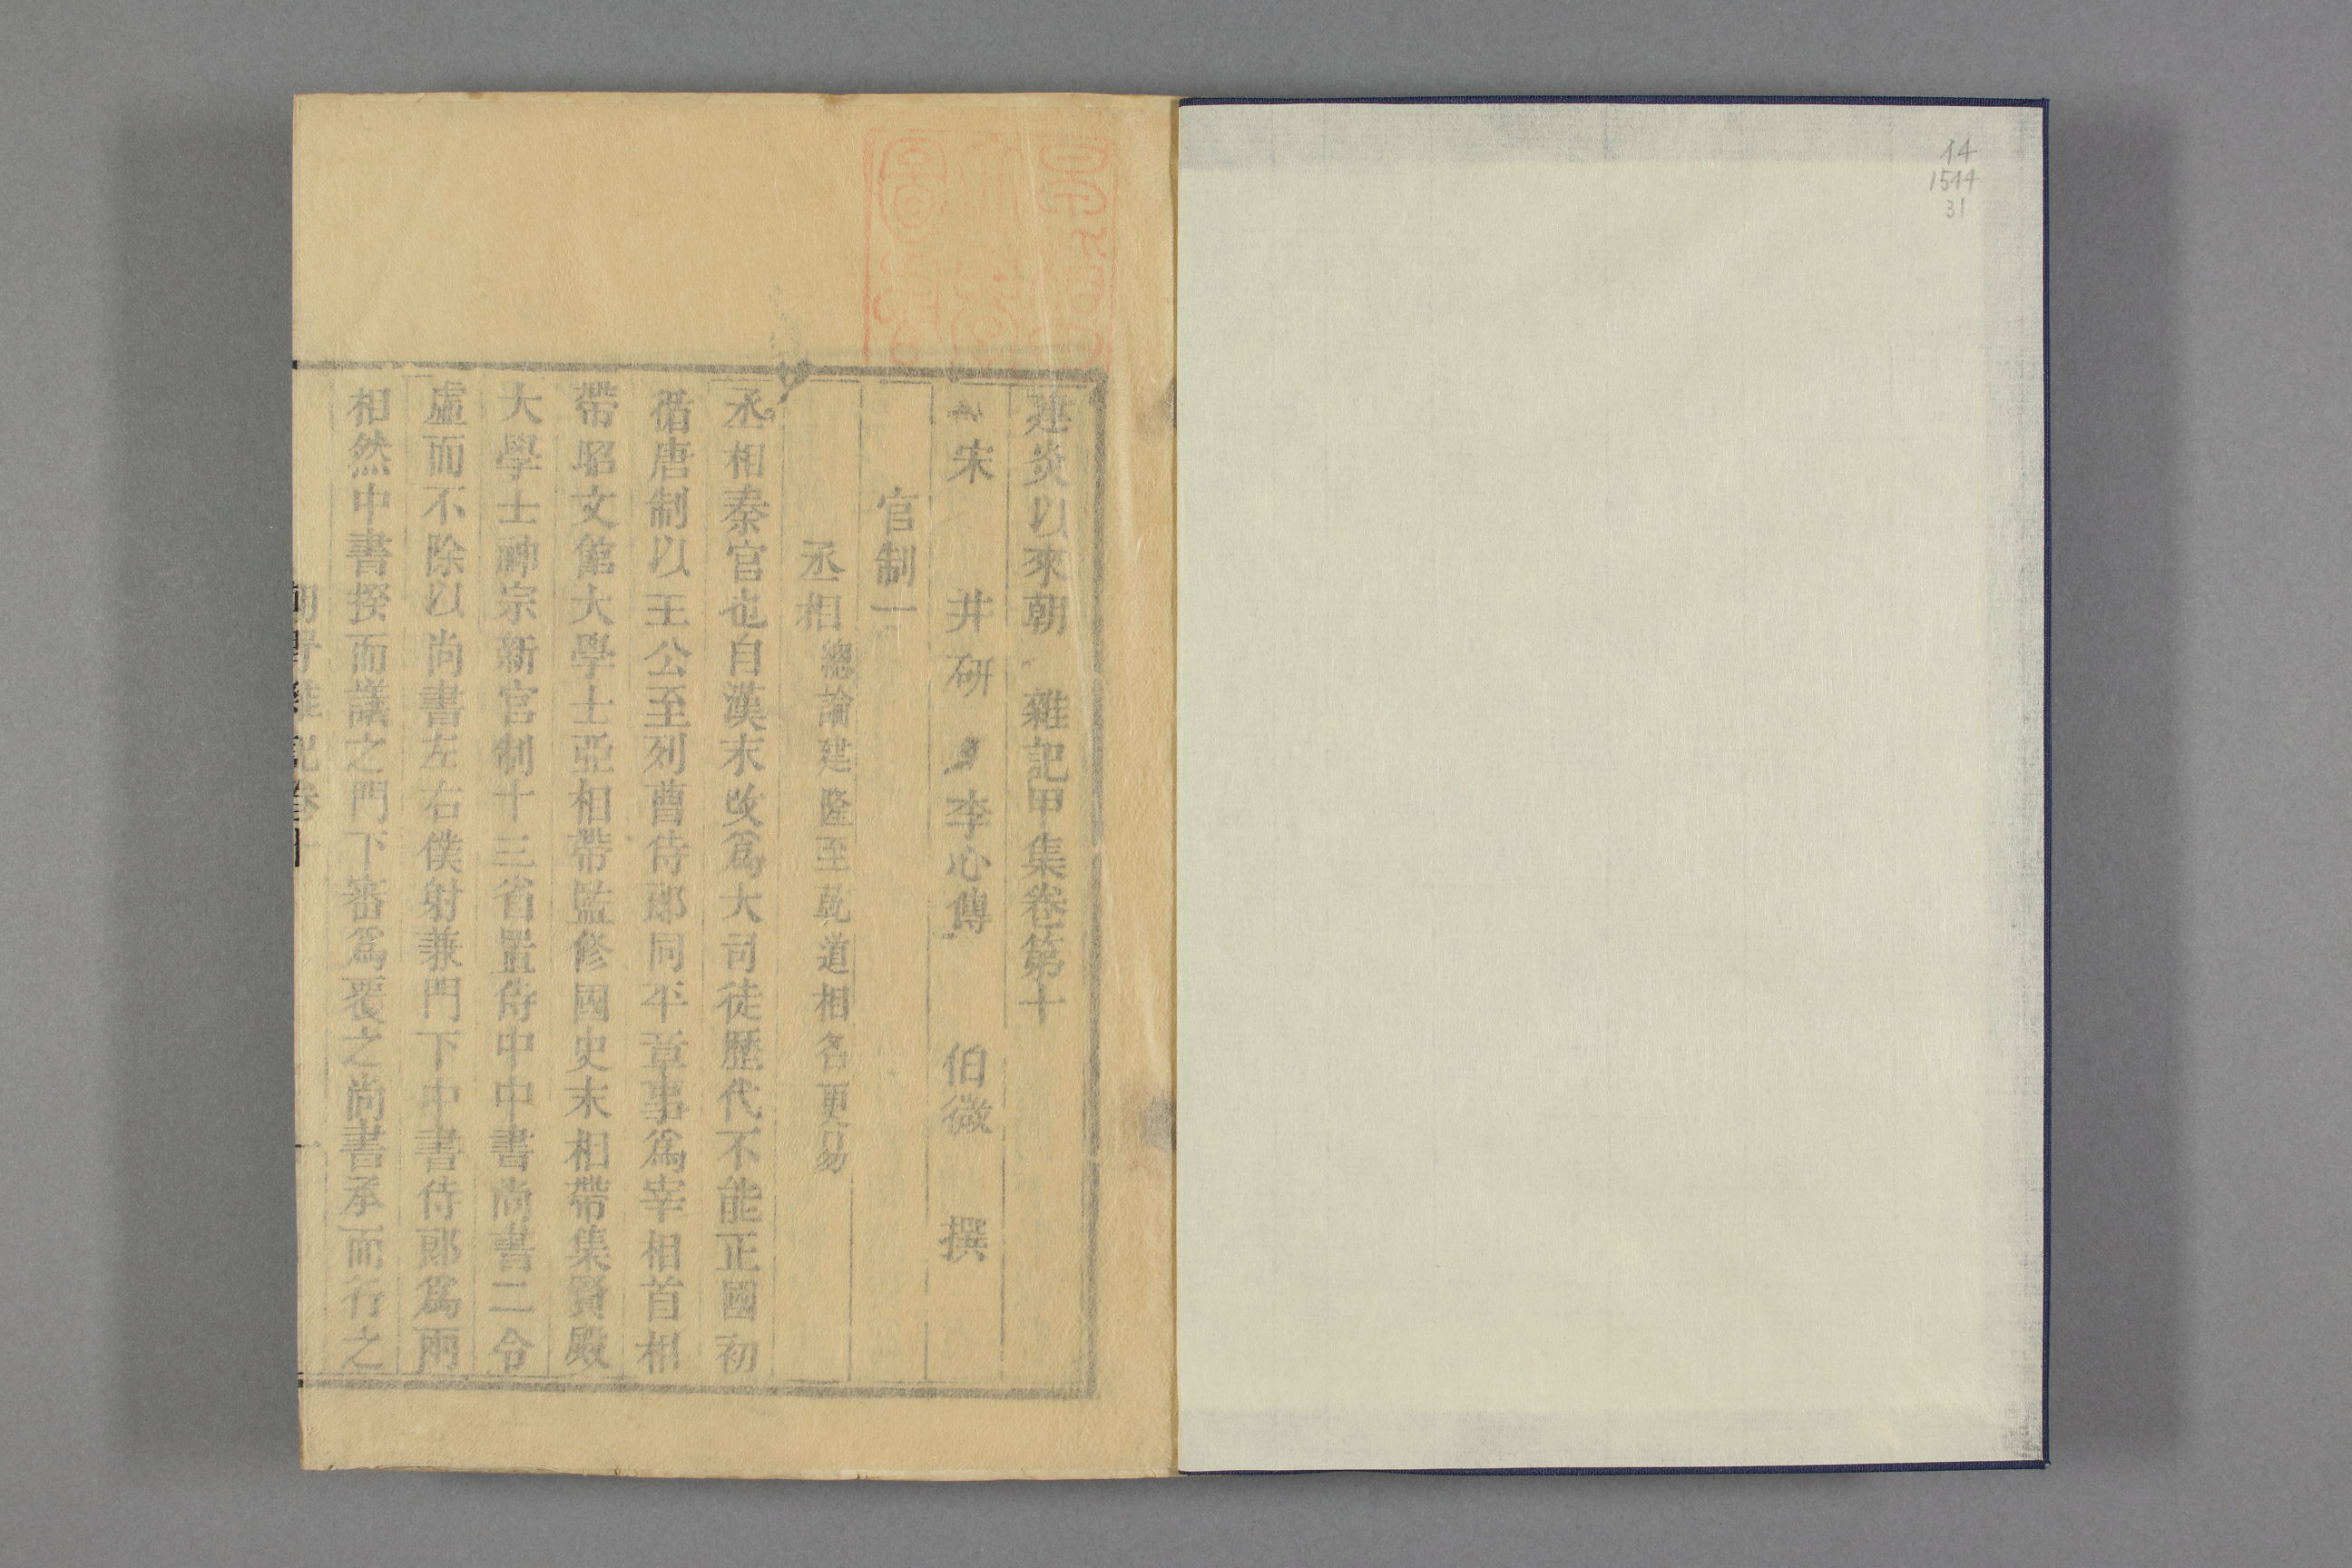 14
1544
31
建炎以來朝 雜記甲集卷第十
宋 井研 李心傳 伯微 撰
官制一
丞相總論建隆至乾道相名更易
丞相秦官也自漢末改爲大司徒歷代不能正國初
循唐制以王公至列曹侍郎同平章事爲宰相首相
帶昭文館大學士亞相帶監修國史末相帶集賢殿
大學士神宗新官制十三省置侍中中書尚書二令
虛而不除以尚書左右僕射兼門下中書侍郎爲兩
相然中書揆而議之門下審爲覆之尚書承而行之